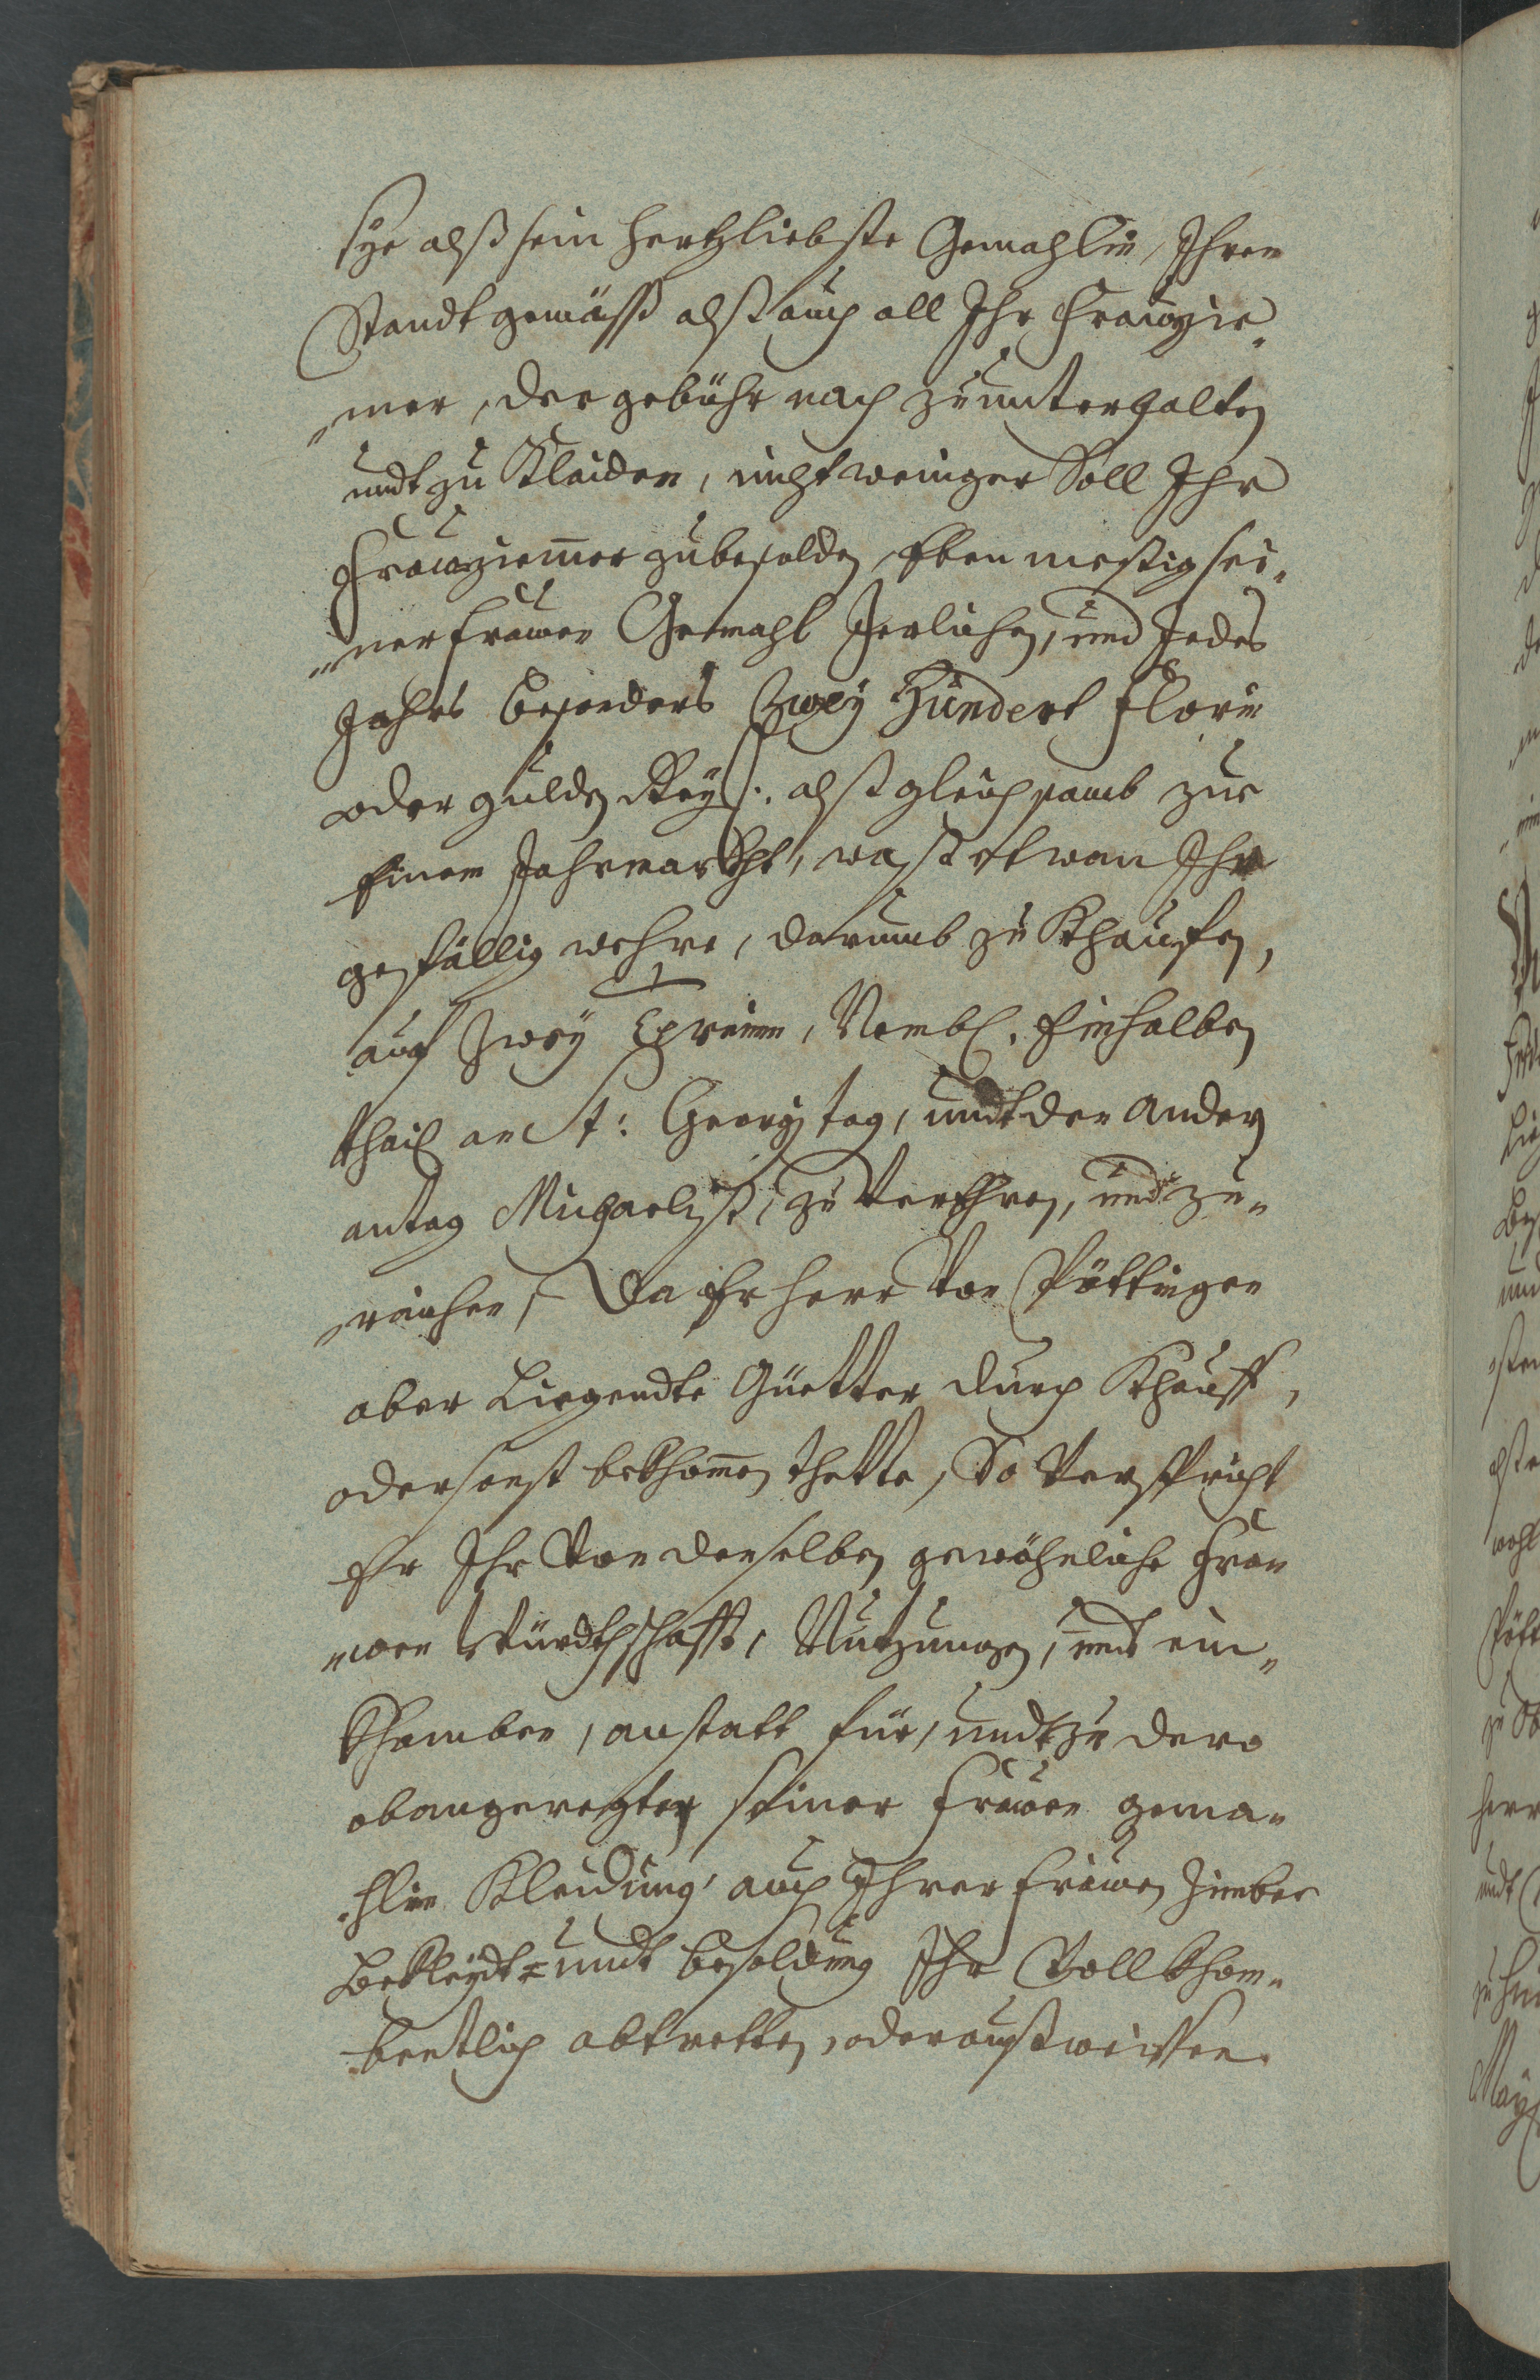 sÿe alß sein hertzliebste Gemahlin, Ihrem
Standt gemäß alß auch all Ihr Frawzie„
„mer, der gebühr nach zu unterhalten
undt zu Klaiden, nicht weniger Soll Ihr
Frawziemer zubesolden, Eben meßig sei„
„ner frawen Gemahl Jerlichen, und Jedes
Jahrs besonders Zweÿ Hundert Florin
oder gulden Rey: alß gleichsamb zue
Einem Jahrmarkht, waß etwan Ihr
gefällig wehre, darumb zu Khauffen,
auf Zweÿ Termin, Nembl. Ein halben
thail an St: Georgj tag, undt den Andern
an tag Michaeliß, zu verehren, und zu„
„raichen, Da Er herr von Pöttingen
aber Liegendte Güetter durch Khauff,
oder sonst bekhomen thette, So verspricht
Er Ihr von denselben gewöhnliche Fra„
„wen Würdtschafft, Nutzungen, und ein„
Khomben, anstatt für, undt zu dero
obangeregter seiner Frawen gema„
„hlin Kleidung, auch Ihrer Frawen Zimber
Bekleydt= undt besoldung Ihr Vollkhom„
„bentlich abtretten, oder außweisen.